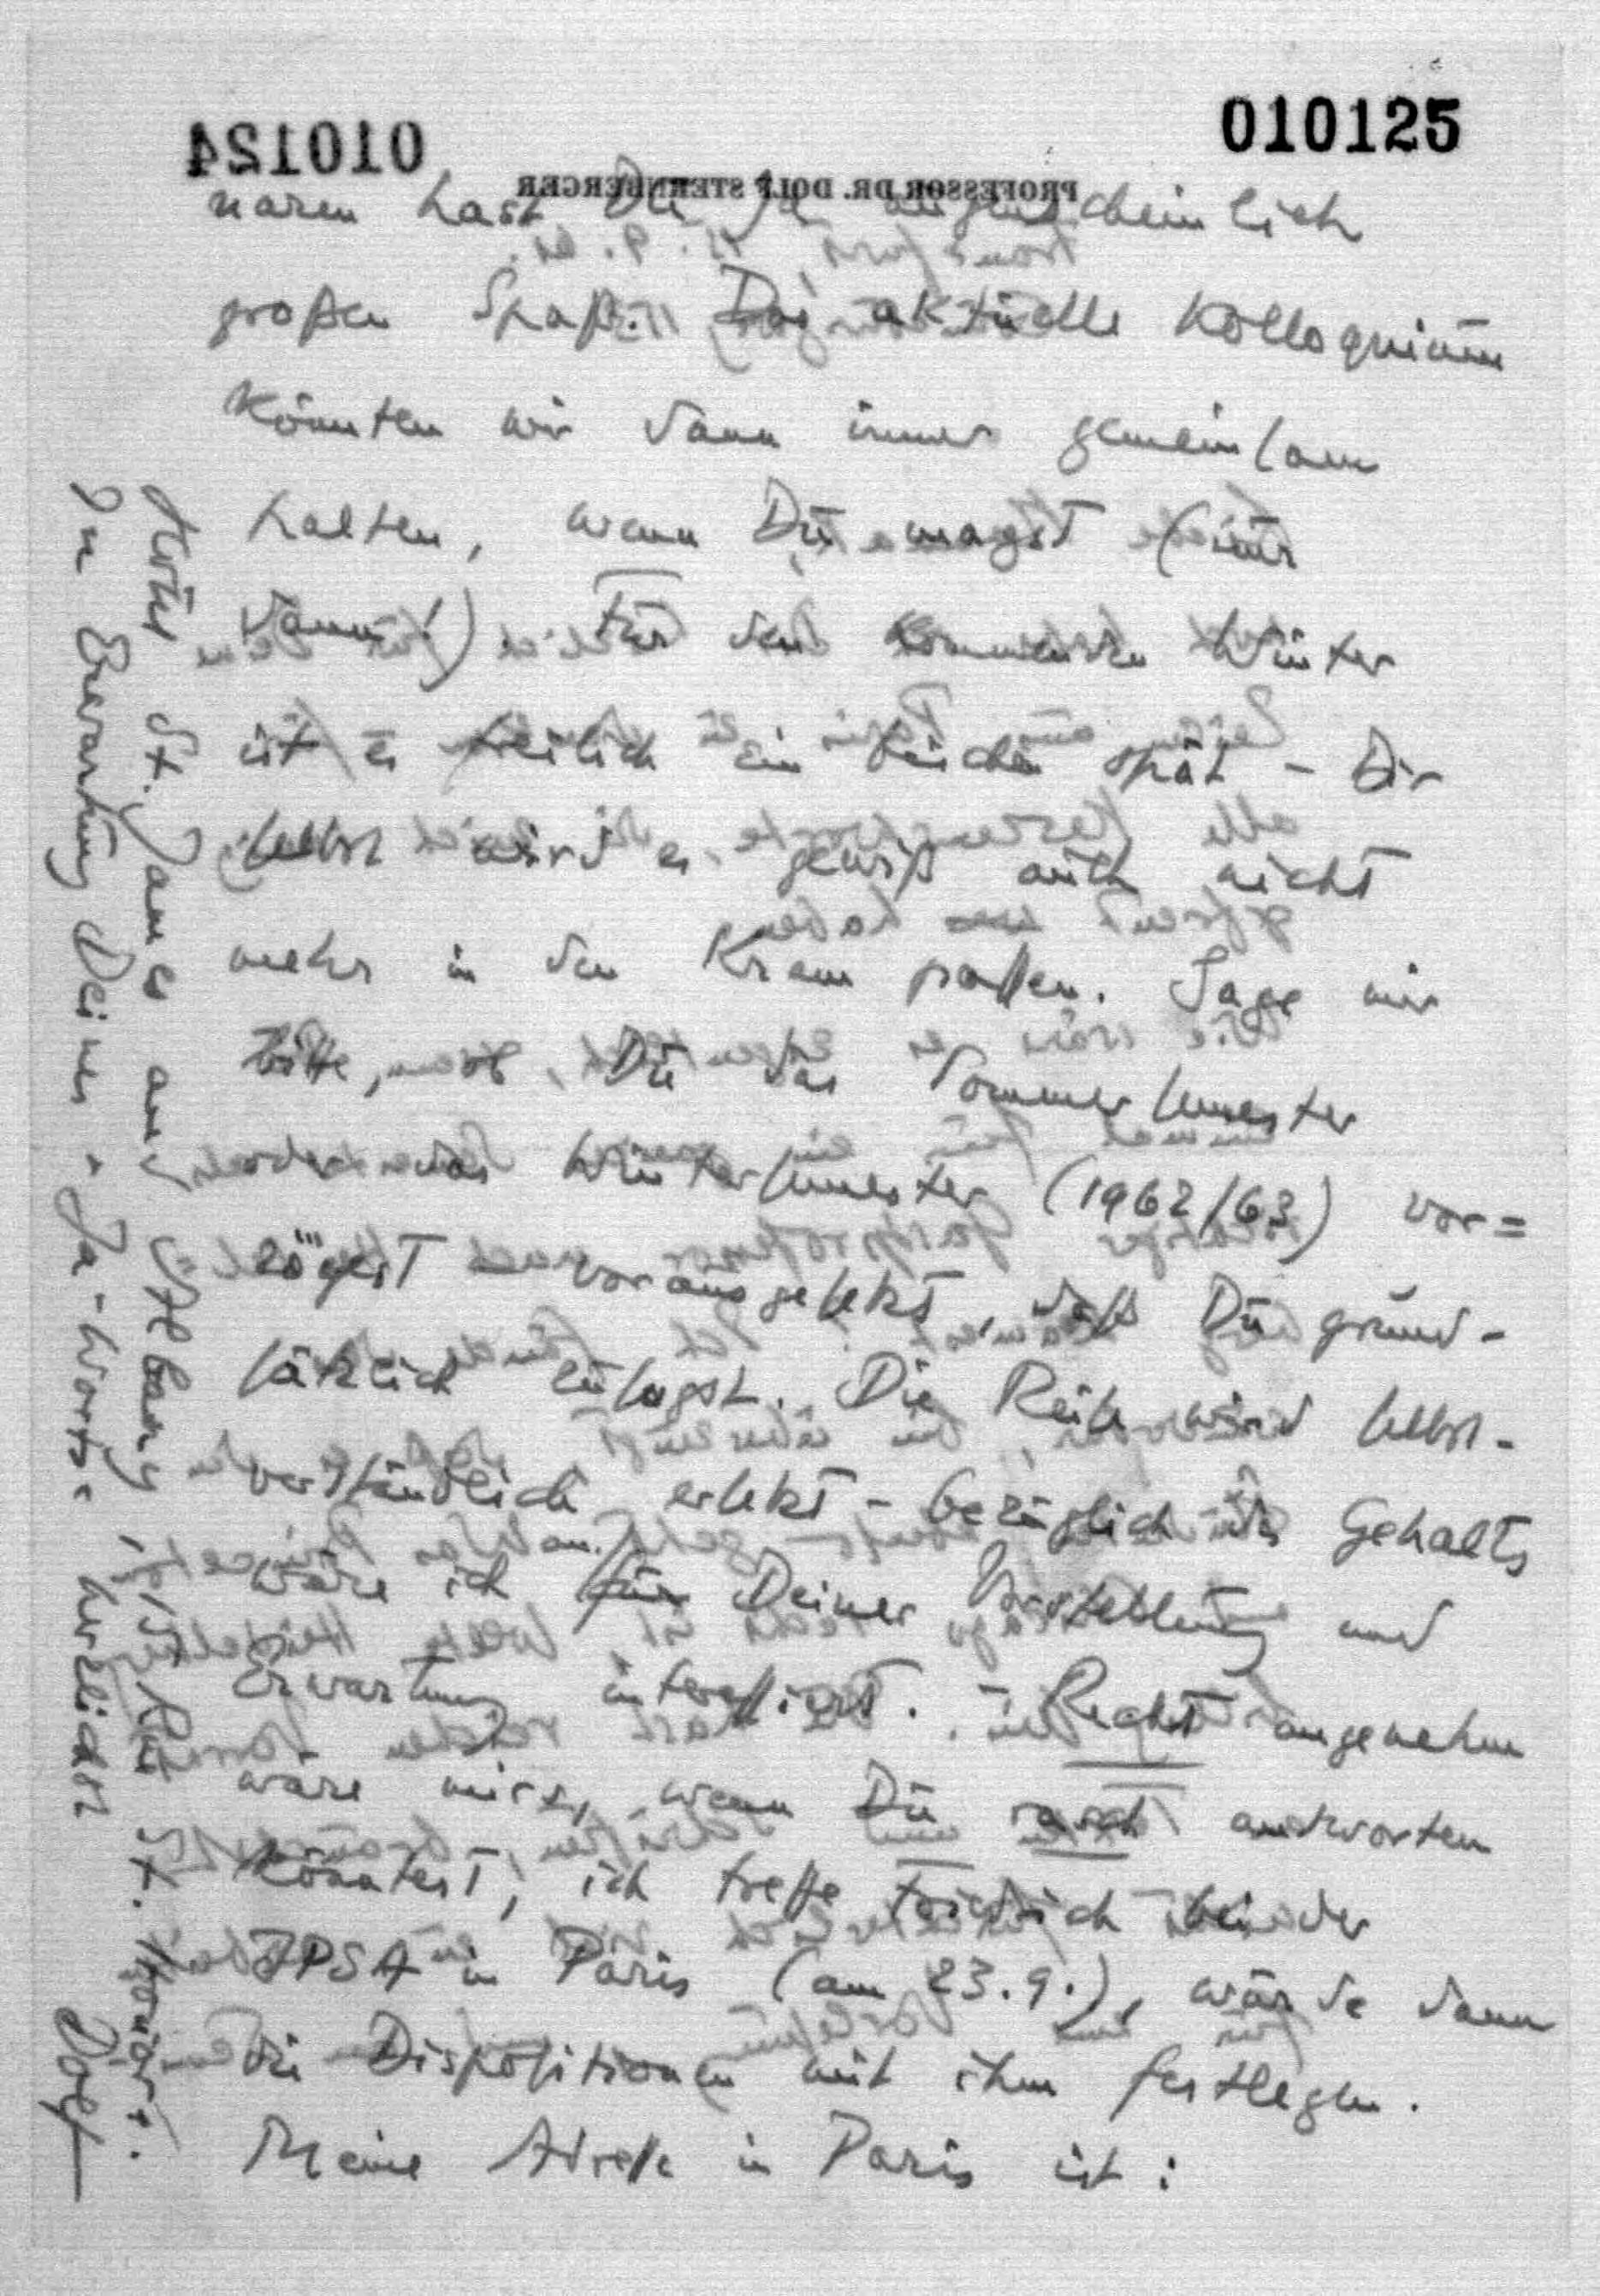 010125
naren hast Du ja augenscheinlich
großen Spaß. Das aktuelle Kolloquium
könnten wir dann immer gemeinsam
halten, wenn Du magst (nur
dann!) Für den kommenden Winter
ist es freilich ein bischen spät – Dir
selbst wird es gewiß auch nicht
mehr in den Kram passen. Sage mir
bitte, ob Du das Sommersemester
oder das Wintersemester (1962/63) vor=
zögest – vorausgesetzt, daß Du grund-
sätzlich zusagst. Die Reise wird selbst-
verständlich ersetzt – bezüglich des Gehalts
wäre ich an Deiner Vorstellung und
Erwartung interessiert. – Recht angenehm
wäre mirs, wenn Du rasch antworten
könntest, ich treffe Friedrich bei der
IPSA in Paris (am 23.9.), würde dann
die Dispositionen mit ihm festlegen.
Meine Adresse in Paris ist:
Hotel St. James and Albany, Rue St. Honoré.
In Erwartung Deines Ja-Wortes herzlichst
Dolf
010124
PROFESSOR DR. DOLF STERNBERGER